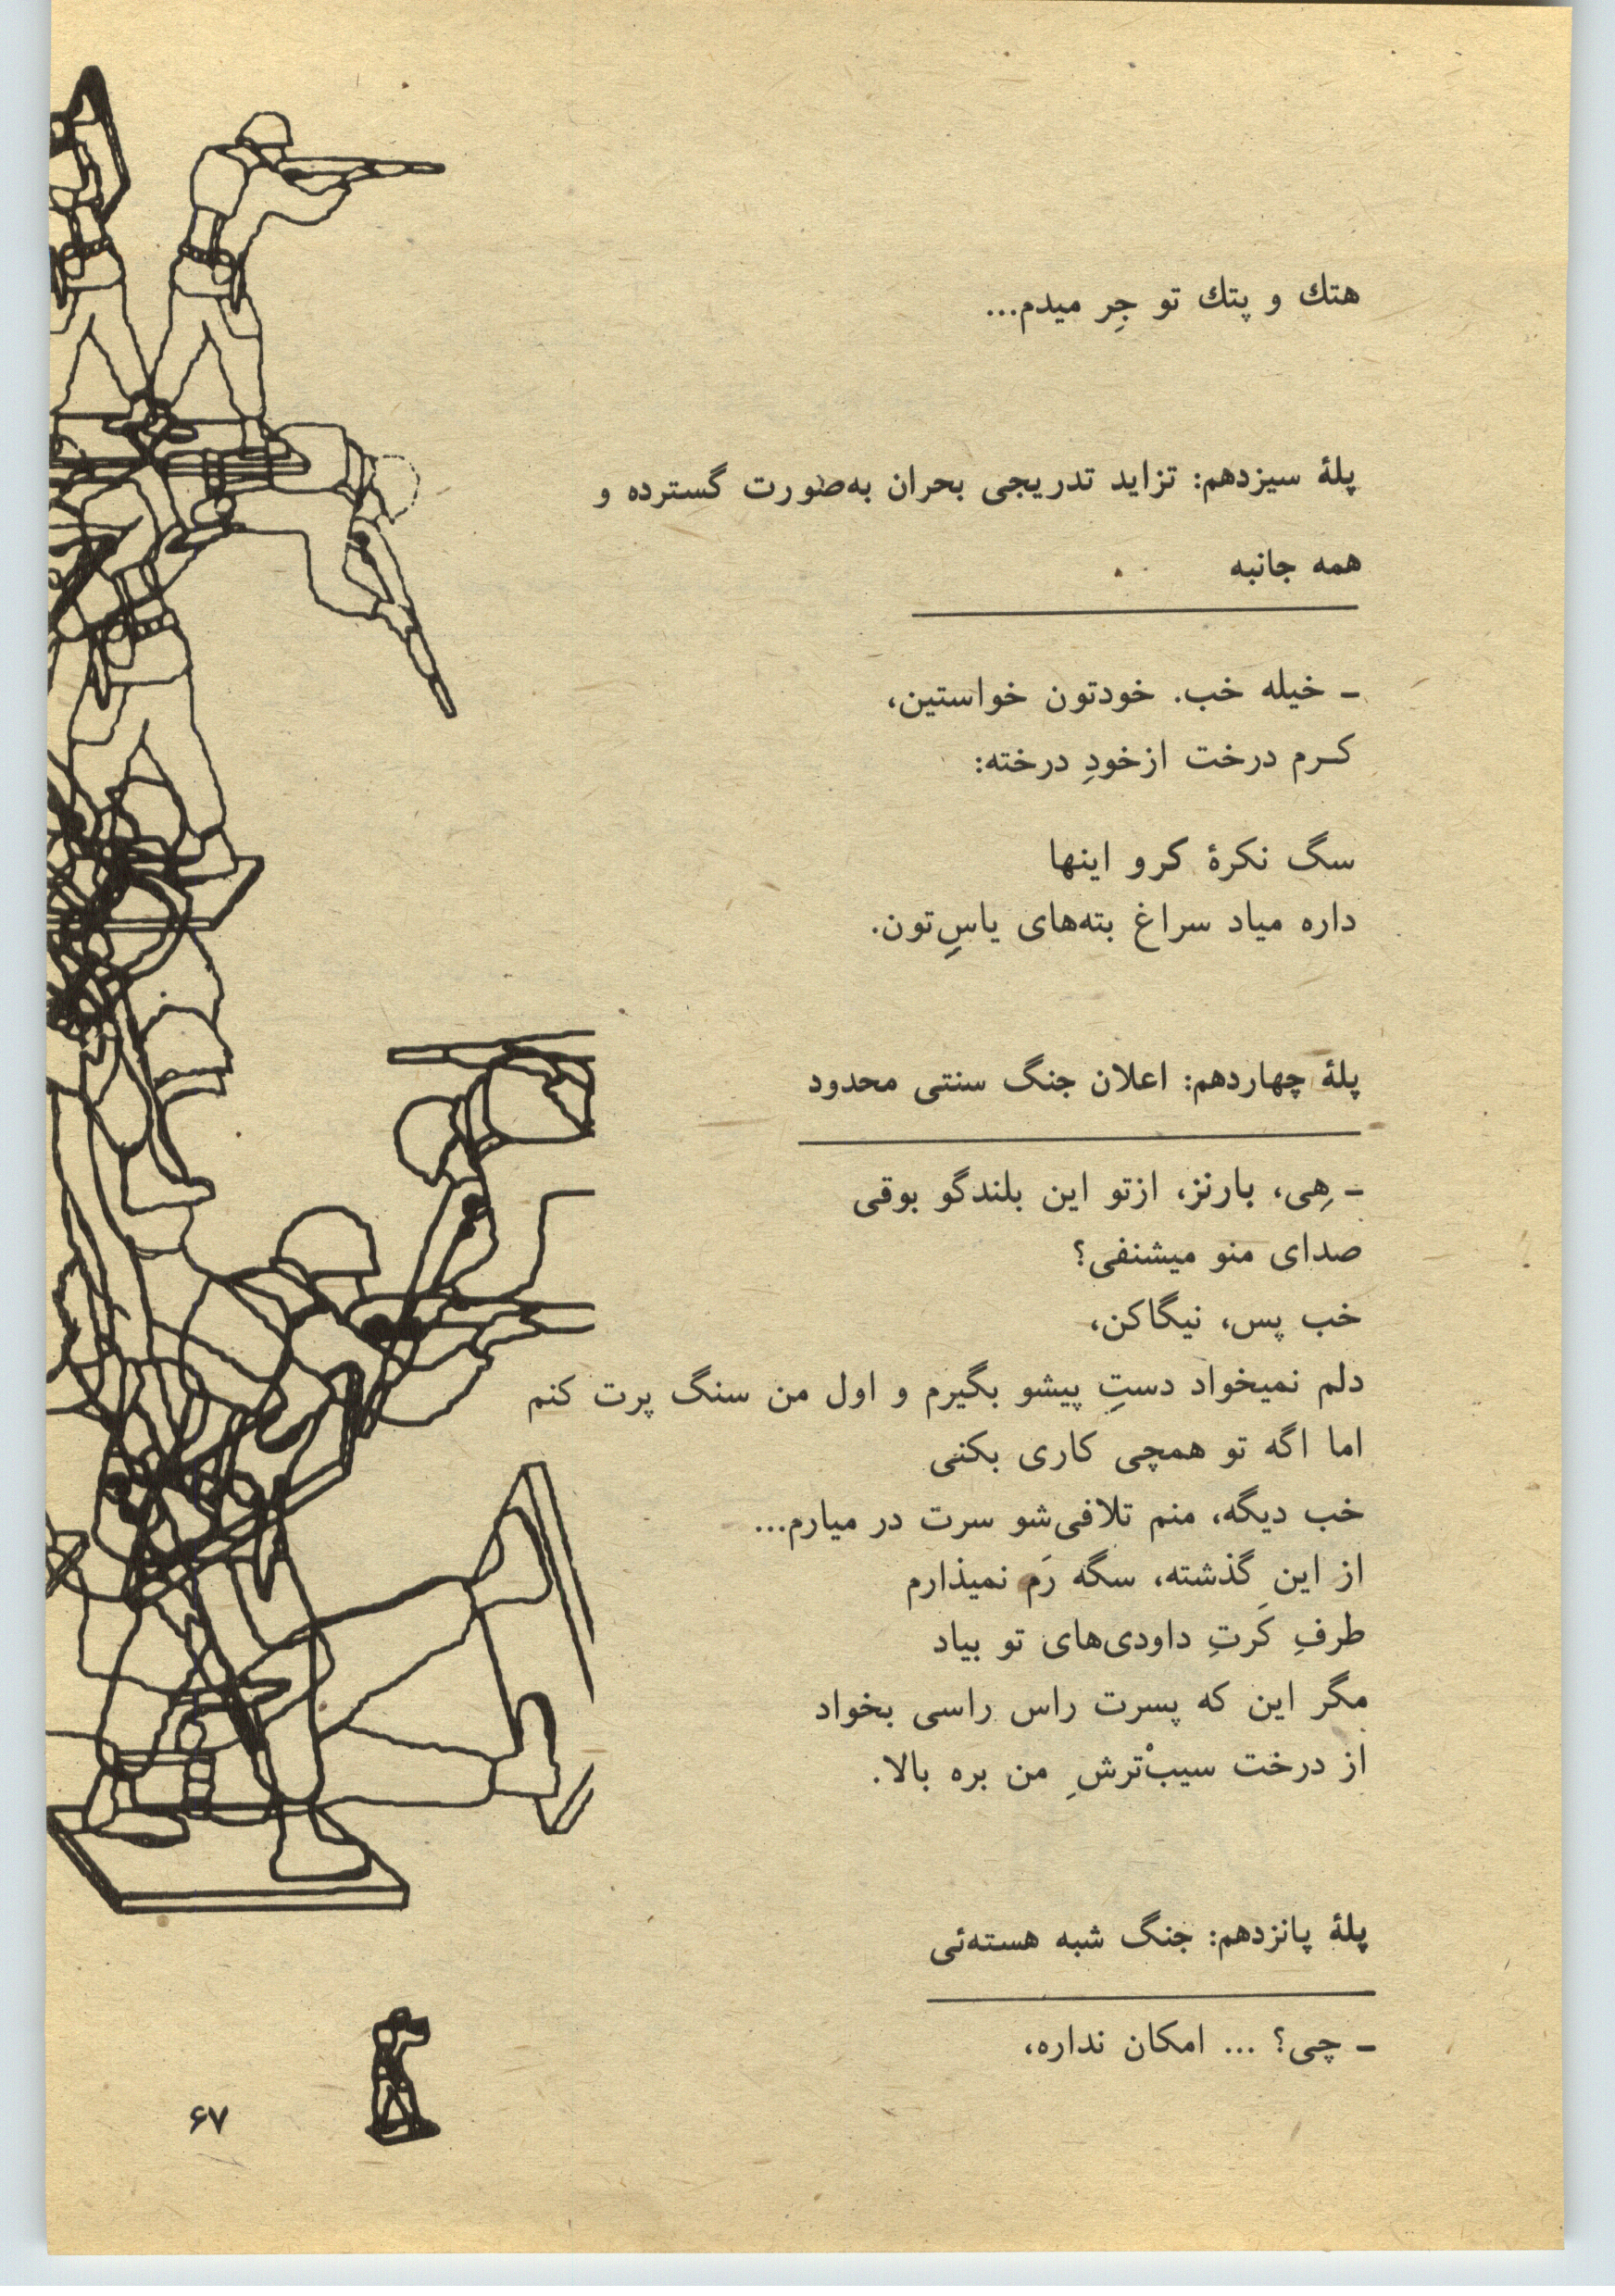 هتك و پتك تو جِر میدم...
پلهٔ سیزدهم: تزاید تدریجی بحران به‌صورت گسترده و
همه جانبه
ـ خیله خب. خودتون خواستین،
کـرم درخت ازخودِ درخته:
سگ نکرهٔ کرو اینها
داره میاد سراغ بته‌های یاسِ‌تون.
پلهٔ چهاردهم: اعلان جنگ سنتی محدود
ـ هِی، بارنز، ازتو این بلندگو بوقی
صدای منو میشنفی؟
خب پس، نیگاکن،
دلم نمیخواد دستِ پیشو بگیرم و اول من سنگ پرت کنم
اما اگه تو همچی کاری بکنی
خب دیگه، منم تلافی‌شو سرت در میارم...
از این گذشته، سگه رَم نمیذارم
طرفِ کَرتِ داودی‌های تو بیاد
مگر این که پسرت راس راسی بخواد
از درخت سیبْ‌ترشِ من بره بالا.
پلهٔ پانزدهم: جنگ شبه هسته‌ئی
ـ چی؟ ... امکان نداره،
۶۷